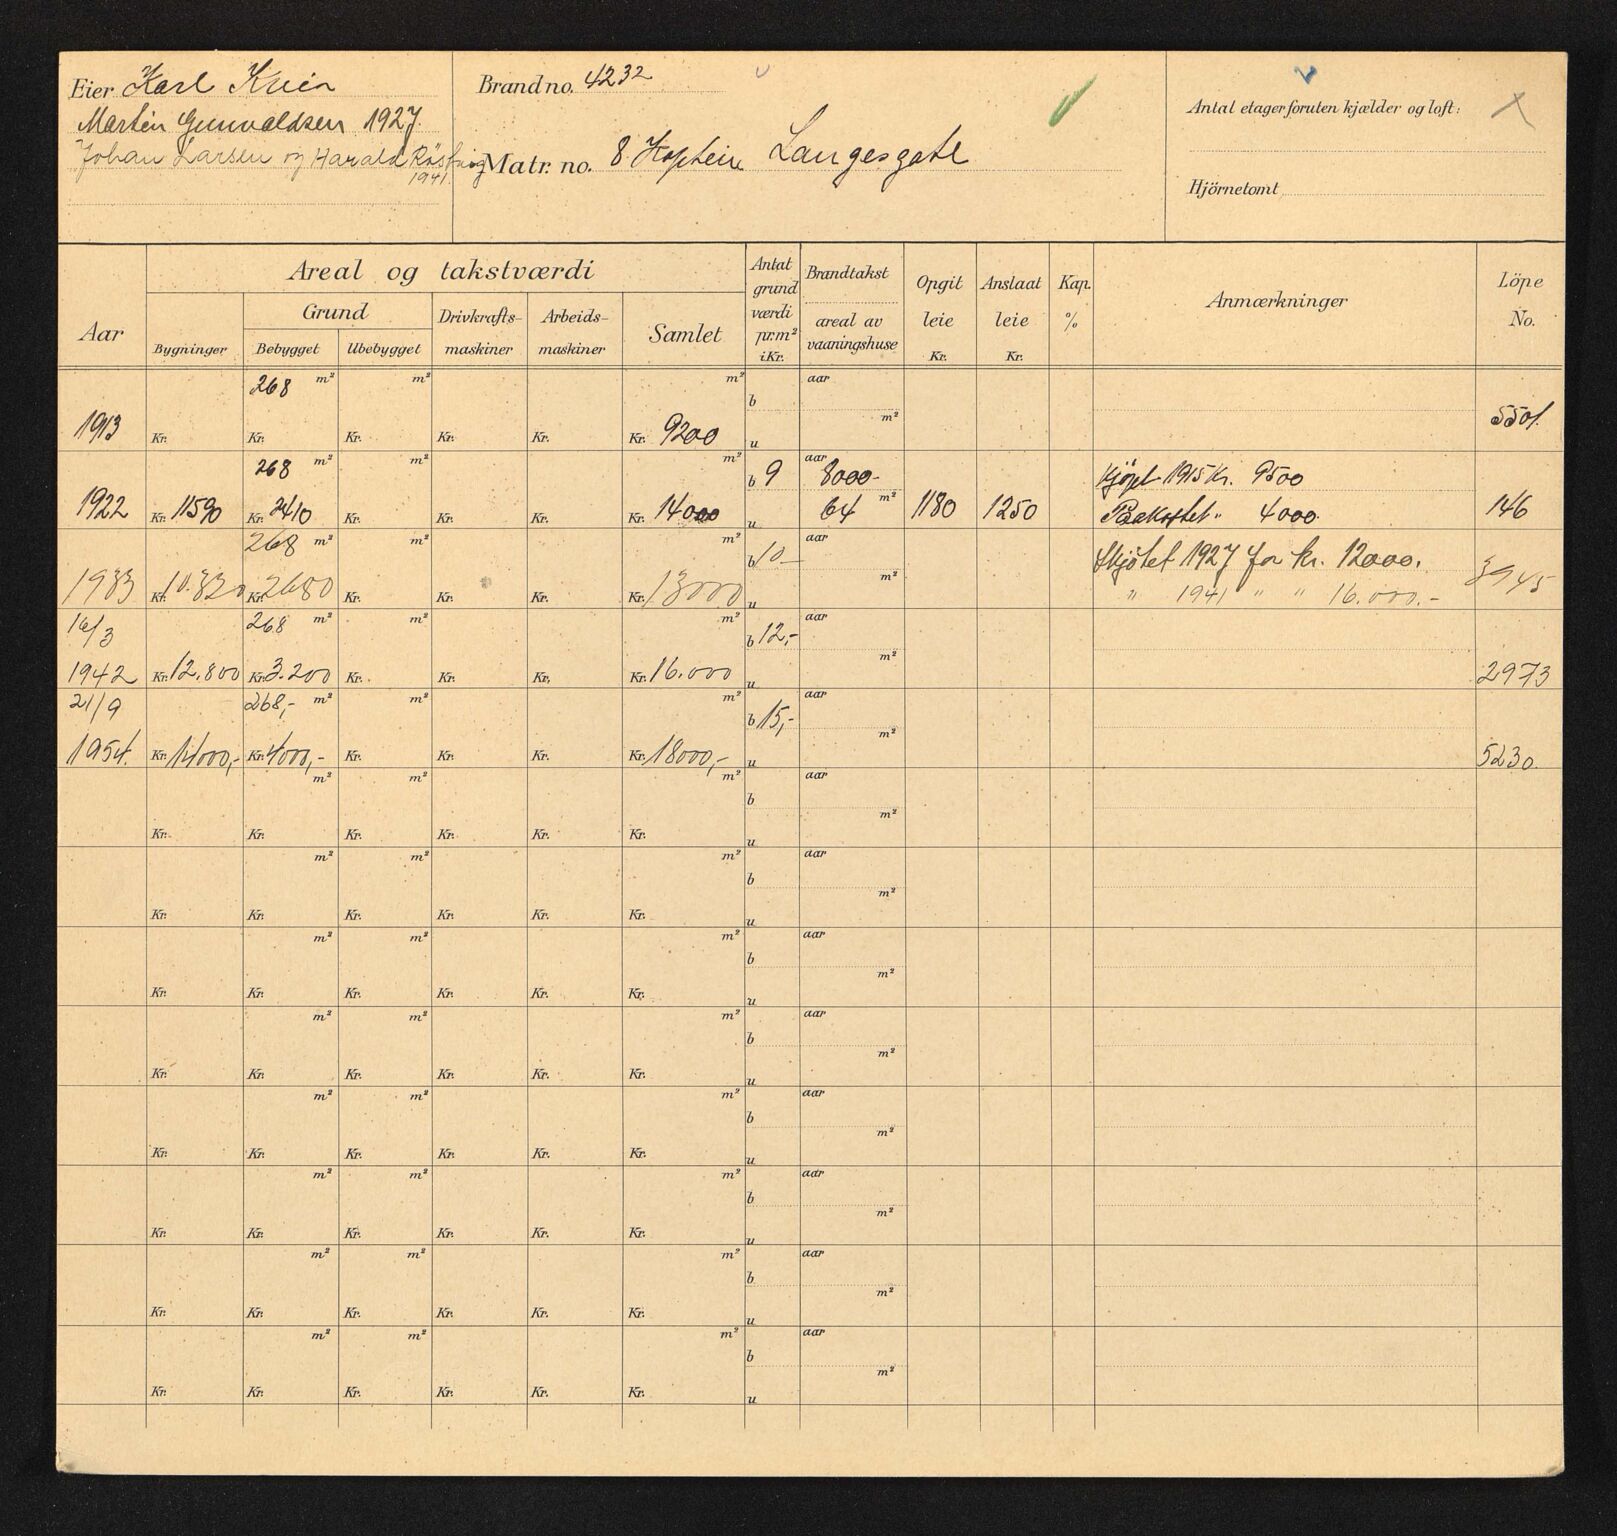 Eier Karl
Martin Gunvaldsen 1927.
Johan Larsen og Harald
1941.
Brand no. 4232
Matr. no. 8 Kaptein Langesgate
Antal etager foruten kjælder og loft:
Hjörnetomt
Aar
Areal og takstværdi
Bygninger
Grund
Bebygget Ubebygget
Drivkrafts-maskiner
Arbeids-maskiner
Samlet
Antat grund værdi pr.m² i Kr.
Brandtakst
areal av vaaningshuse
Opgit leie Kr.
Anslaat leie Kr.
Kap. %
Anmærkninger
Löpe No.
268 m² m² m² aar
b
m²
1913 Kr. Kr. Kr. Kr. Kr. Kr. 9200 u 5501.
268 m² m² m² b 9 aar 8000- Kjöpt 1915 Kr. 9500
1922 Kr. 11590 Kr. 2410 Kr. Kr. Kr. Kr. 14000 u 64 m² 1180 1250 Paakostet " 4000. 146
268 m² m² m² b 10- aar Skjötet 1927 for kr. 12000.
1933 Kr. 10.320 Kr. 2680 Kr. Kr. Kr. Kr. 13000 u m² " 1941 " " 16.000.- 3945
16/3 268 m² m² m² b 12,- aar
m²
1942 Kr. 12.800 Kr. 3.200 Kr. Kr. Kr. Kr. 16.000 u 2973
21/9 268,- m² m² m² b 15,- aar
m²
1954. Kr. 14000,- Kr. 4000,- Kr. Kr. Kr. Kr. 18000,- u 5230.
m² m² m² aar
b
m²
Kr. Kr. Kr. Kr. Kr. Kr. u
m² m² m² aar
b
m²
Kr. Kr. Kr. Kr. Kr. Kr. u
m² m² m² aar
b
m²
Kr. Kr. Kr. Kr. Kr. Kr. u
m² m² m² aar
b
m²
Kr. Kr. Kr. Kr. Kr. Kr. u
m² m² m² aar
b
m²
Kr. Kr. Kr. Kr. Kr. Kr. u
m² m² m² aar
b
m²
Kr. Kr. Kr. Kr. Kr. Kr. u
m² m² m² aar
b
m²
Kr. Kr. Kr. Kr. Kr. Kr. u
m² m² m² aar
b
m²
Kr. Kr. Kr. Kr. Kr. Kr. u